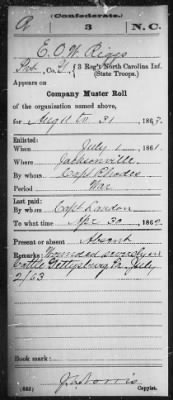 (Confederate.)
R 3 N.C.
E. O. W. Riggs
Pvt, Co. G, 3 Reg't North Carolina Inf.
(State Troops.)
Appears on
Company Muster Roll
of the organization named above,
for Aug 11 to 31, 1863.
Enlisted:
When July 1, 1861.
Where Jacksonville
By whom Capt Rhodes
Period War
Last paid:
By whom Capt
To what time Apr 30, 186
Present or absent Absent
Remarks: Wounded severely in
battle Gettysburg Pa July
2/63
Book mark:
Copyist.